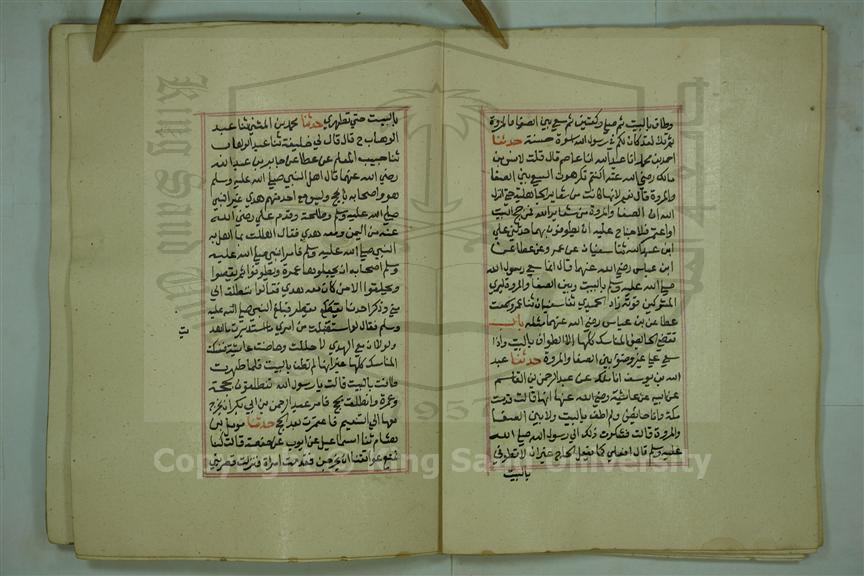 وطاف بالبيت ثم صلى ركعتين ثم سعى بين الصفا والمروة
ثم تلا لقد كان لكم في رسول الله اسوة حسنة حدثنا
احمد بن محمد انا عبد الله انا عاصم قال قلت لانس بن
مالك رضي الله عنه اكنتم تكرهون السعي بين الصفا
والمروة قال نعم لانها كانت من شعاير الجاهلية حتى انزل
الله ان الصفا والمروة من شعاير الله فمن حج البيت
او اعتمر فلا جناح عليه ان يطوف بهما حدثني علي
ابن عبد الله ثنا سفيان عن عمرو عن عطا عن
ابن عباس رضي الله عنهما قال انما سعى رسول الله
صلى الله عليه وسلم بالبيت وبين الصفا والمروة ليري
المشركين قوته زاد الحميدي ثنا سفيان ثنا عمرو سمعت
عطا عن ابن عباس رضي الله عنهما مثله باب
تقضي الحائض المناسك كلها الا الطواف بالبيت واذا
سعى على غير وضوء بين الصفا والمروة حدثنا عبد
الله بن يوسف انا مالك عن عبد الرحمن بن القاسم
عن ابيه عن عائشة رضي الله عنها انها قالت قدمت
مكة وانا حايض ولم اطف بالبيت ولا بين الصفا
والمروة قالت فشكوت ذلك الى رسول الله صلى الله
عليه وسلم قال افعلي كما يفعل الحاج غير ان لا تطوفي
بالبيت
بالبيت حتى تطهري حدثنا محمد بن المثنى ثنا عبد
الوهاب ح قال قال لي خليفة ثنا عبد الوهاب
ثنا حبيب المعلم عن عطا عن جابر بن عبد الله
رضي الله عنهما قال اهل النبي صلى الله عليه وسلم
هو واصحابه بالحج وليس مع احد منهم هدي غير النبي
صلى الله عليه وسلم وطلحة وقدم علي رضي الله
عنه من اليمن ومعه هدي فقال اهللت بما اهل به
النبي صلى الله عليه وسلم فامر النبي صلى الله عليه
وسلم اصحابه ان يجعلوها عمرة ويطوفوا ثم يقصروا
ويحلوا الا من كان معه هدي فقالوا ننطلق الى
منى وذكر احدنا يقطر فبلغ النبي صلى الله عليه
وسلم فقال لو استقبلت من امري ما استدبرت ما اهديت
ولولا ان معي الهدي لاحللت وحاضت عائشة فنسكت
المناسك كلها غير انها لم تطف بالبيت فلما طهرت
طافت بالبيت قالت يا رسول الله تنطلقون بحجة
وعمرة وانطلق بحج فامر عبد الرحمن بن ابي بكر ان يخرج
معها الى التنعيم فاعتمرت بعد الحج حدثنا مومل بن
هشام ثنا اسماعيل عن ايوب عن حفصة قالت كنا
نمنع عواتقنا ان يخرجن فقدمت امراة فنزلت قصر بني
King Saud University
1957
Copyright © King Saud University